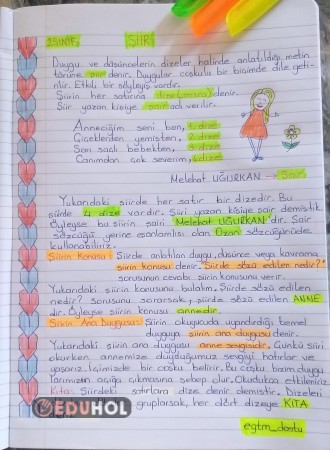 3.SINIF
ŞİİR
Duygu ve düşüncelerin dizeler halinde anlatıldığı metin
türüne şiir denir. Duygular coşkulu bir biçimde dile geti-
rilir. Etkili bir söyleyiş vardır.
Şiirin her satırına dize(mısra) denir.
Şiir yazan kişiye şair adı verilir.
Anneciğim seni ben, 1.dize
Çiçeklerden yemişten, 2.dize
Son saçlı bebekten, 3.dize
Canımdan çok severim. 4.dize
Melahat UĞURKAN → Şair
Yukarıdaki şiirde her satır bir dizedir. Bu
şiirde 4 dize vardır. Şiiri yazan kişiye şair demiştik.
Öyleyse bu şiirin şairi Melahat UĞURKAN'dır. Şair
sözcüğü yerine eşanlamlısı olan Ozan sözcüğünüde
kullanabiliriz.
Şiirin Konusu: Şiirde anlatılan duygu, düşünce veya kavrama
şiirin konusu denir. "Şiirde sözü edilen nedir?"
sorusunun cevabı şiirin konusunu verir.
Yukarıdaki şiirin konusunu bulalım. Şiirde sözü edilen
nedir? sorusunu sorarsak, şiirde sözü edilen ANNE
dir. Öyleyse şiirin konusu annedir.
Şiirin Ana Duygusu: Şiirin okuyucuda uyandırdığı temel
duyguya şiirin ana duygusu denir.
Yukarıdaki şiirin ana duygusu anne sevgisidir. Çünkü şiiri
okurken annemize duyduğumuz sevgiyi hatırlar ve
yaşarız. İçimizde bir coşku belirir. Bu coşku bizim duygu
larımızın açığa çıkmasına sebep olur. Okudukça etkileniriz.
Kıta: Şiirdeki satırlara dize denir demiştik. Dizeleri
gruplarsak, her dört dizeye KITA
EĞUHOL
egtm_dostu